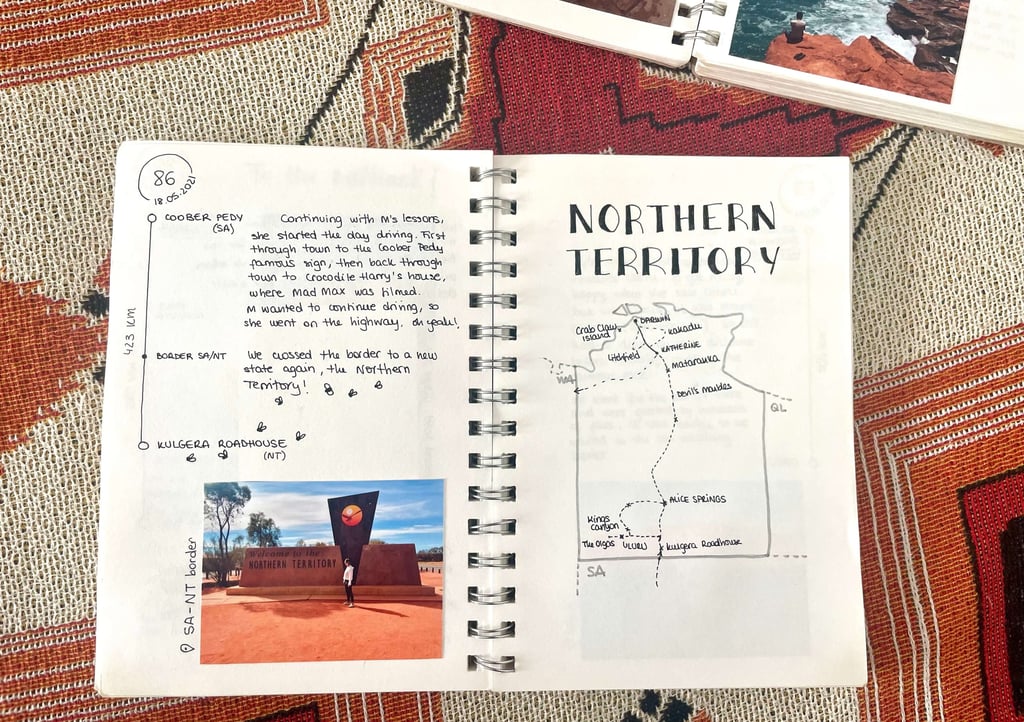 86
18.05.2021
COOBER PEDY
(SA)
423 KM
BORDER SA/NT
KULGERA ROADHOUSE
(NT)
Continuing with M's lessons,
she started the day driving. First
through town to the Coober Pedy
famous sign, then back through
town to Crocodile Harry's house,
where Mad Max was filmed.
M wanted to continue driving, so
she went on the highway. oh yeah!
We crossed the border to a new
state again, the Northern
Territory!
SA-NT border
Welcome to the
NORTHERN TERRITORY
NORTHERN
TERRITORY
DARWIN
Crab Claw
island
Kakadu
Litchfield
KATHERINE
Mataranka
WA
Devil's Marbles
QL
ALICE SPRINGS
Kings
Canyon
The Olgas
ULURU
Kulgera Roadhouse
SA